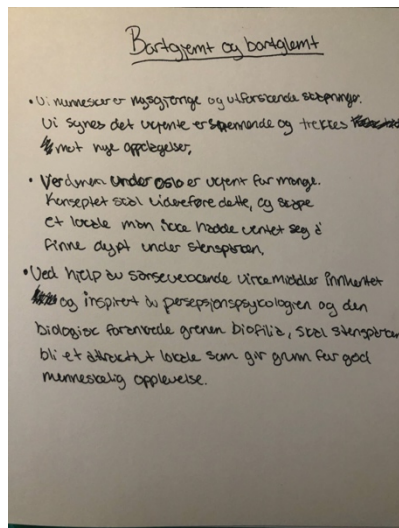 Bortgjemt og bortglemt
• Vi mennesker er nysgjerrige og utforskende skapninger.
Vi synes det ukjente er spennende og trekkes
mot nye oppdagelser.
• Verdenen under Oslo er ukjent for mange.
Konseptet skal videreføre dette, og skape
et lokale man ikke hadde ventet seg å
finne dypt under stensparken.
• Ved hjelp av sansevekkende virkemidler innhentet
og inspirert av persepsjonspsykologien og den
biologisk forankrede grenen biofilia, skal stensparken
bli et attraktivt lokale som gir grunn for god
menneskelig opplevelse.